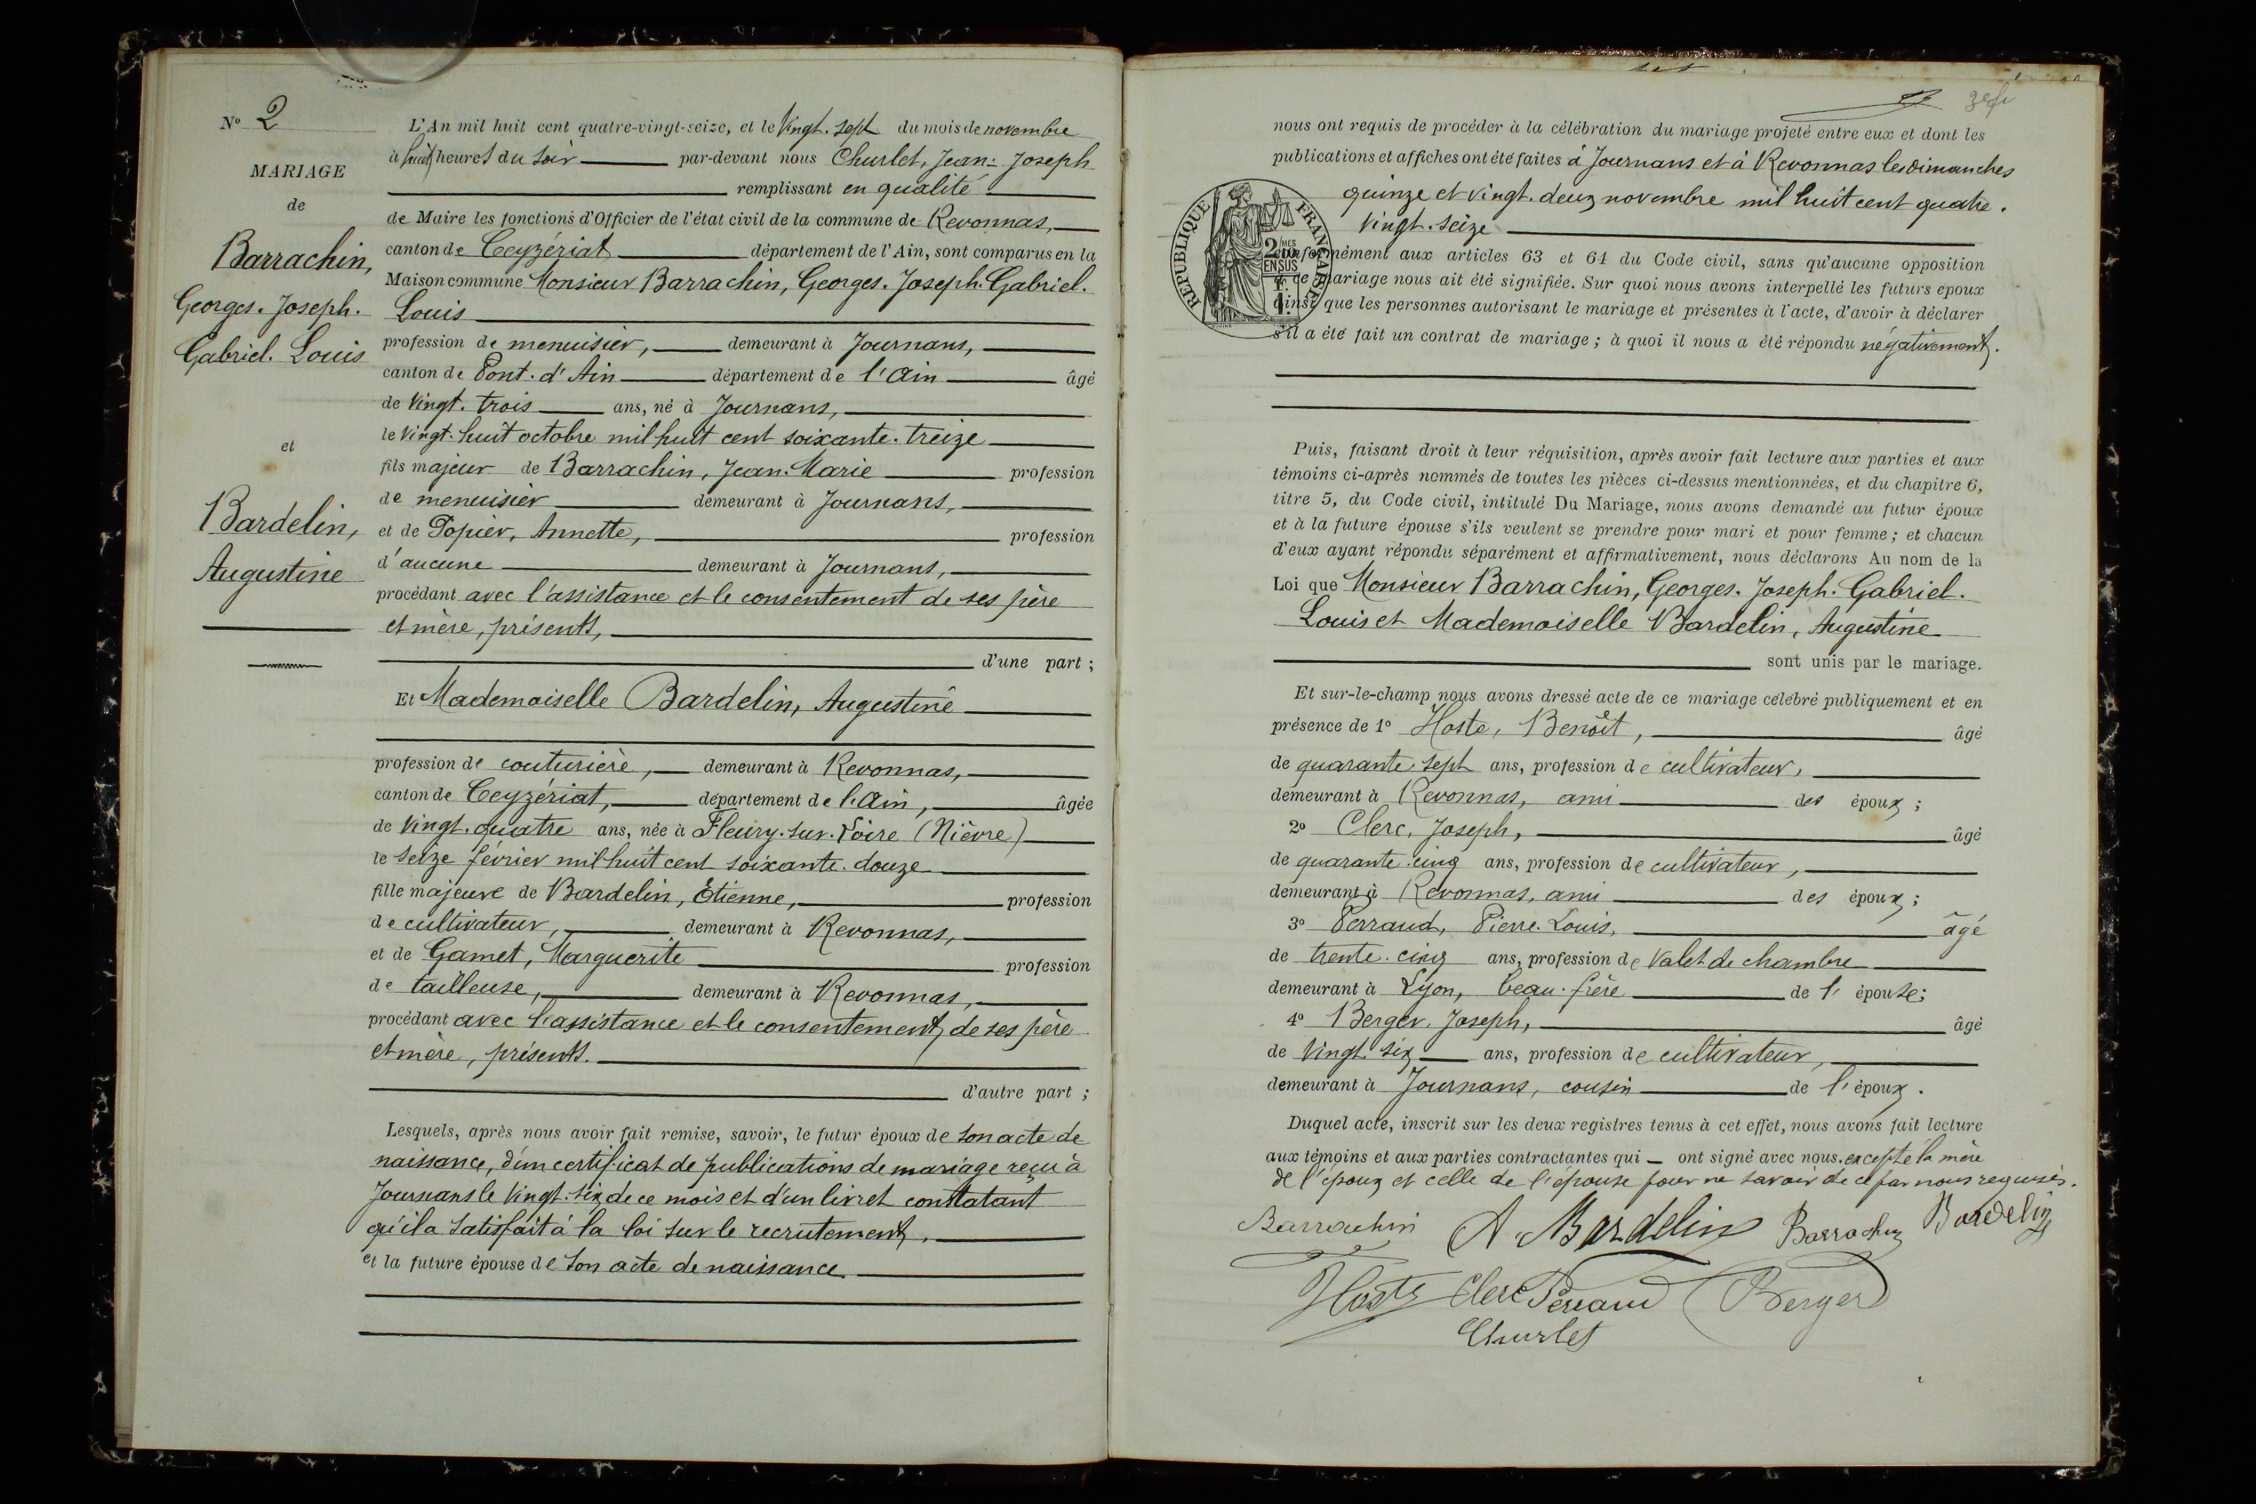 N° 2
MARIAGE
de
Barrachin,
Georges. Joseph.
Gabriel. Louis
et
Bardelin,
Augustine
L'An mil huit cent quatre-vingt-seize, et le vingt. sept du mois de novembre
à huit heures du soir par-devant nous Churlet, Jean-Joseph
remplissant en qualité
de Maire les fonctions d'Officier de l'état civil de la commune de Revonnas,
canton de Ceyzériat département de l'Ain, sont comparus en la
Maison commune Monsieur Barrachin, Georges. Joseph. Gabriel.
Louis
profession de menuisier, demeurant à Journans,
canton de Pont. d'Ain département de l'Ain âgé
de vingt. trois ans, né à Journans,
le vingt. huit octobre mil huit cent soixante. treize
fils majeur de Barrachin, Jean. Marie profession
de menuisier demeurant à Journans,
et de Popier, Annette, profession
d'aucune demeurant à Journans,
procédant avec l'assistance et le consentement de ses père
et mère, présents,
d'une part ;
Et Mademoiselle Bardelin, Augustine
profession de couturière, demeurant à Revonnas,
canton de Ceyzériat, département de l'Ain, âgée
de vingt. quatre ans, née à Fleury. sur. Loire (Nièvre)
le seize février mil huit cent soixante. douze
fille majeure de Bardelin, Étienne, profession
de cultivateur, demeurant à Revonnas,
et de Gamet, Marguerite profession
de tailleuse, demeurant à Revonnas,
procédant avec l'assistance et le consentement de ses père
et mère, présents.
d'autre part ;
Lesquels, après nous avoir fait remise, savoir, le futur époux de son acte de
naissance, d'un certificat de publications de mariage reçu à
Journans le vingt. six de ce mois et d'un livret constatant
qu'il a satisfait à la loi sur le recrutement,
et la future épouse de son acte de naissance
nous ont requis de procéder à la célébration du mariage projeté entre eux et dont les
publications et affiches ont été faites à Journans et à Revonnas les dimanches
quinze et vingt. deux novembre mil huit cent quatre.
vingt. seize
RÉPUBLIQUE FRANÇAISE
2/10MES EN SUS
conformément aux articles 63 et 64 du Code civil, sans qu'aucune opposition
à ce mariage nous ait été signifiée. Sur quoi nous avons interpellé les futurs epoux
ainsi que les personnes autorisant le mariage et présentes à l'acte, d'avoir à déclarer
s'il a été fait un contrat de mariage ; à quoi il nous a été répondu négativement.
Puis, faisant droit à leur réquisition, après avoir fait lecture aux parties et aux
témoins ci-après nommés de toutes les pièces ci-dessus mentionnées, et du chapitre 6,
titre 5, du Code civil, intitulé Du Mariage, nous avons demandé au futur époux
et à la future épouse s'ils veulent se prendre pour mari et pour femme ; et chacun
d'eux ayant répondu séparément et affirmativement, nous déclarons Au nom de la
Loi que Monsieur Barrachin, Georges. Joseph. Gabriel.
Louis et Mademoiselle Bardelin, Augustine
sont unis par le mariage.
Et sur-le-champ nous avons dressé acte de ce mariage célébré publiquement et en
présence de 1° Hoste, Benoît, âgé
de quarante. sept ans, profession de cultivateur,
demeurant à Revonnas, ami des époux ;
2° Clerc, Joseph, âgé
de quarante. cinq ans, profession de cultivateur,
demeurant à Revonnas, ami des époux ;
3° Perraud, Pierre. Louis, âgé
de trente. cinq ans, profession de valet de chambre
demeurant à Lyon, beau. frère de l'épouse ;
4° Berger, Joseph, âgé
de vingt. six ans, profession de cultivateur,
demeurant à Journans, cousin de l'époux.
Duquel acte, inscrit sur les deux registres tenus à cet effet, nous avons fait lecture
aux témoins et aux parties contractantes qui ont signé avec nous. excepté la mère
de l'époux et celle de l'épouse pour ne savoir de ce par nous requises.
Barrachin A. Bardelin Barrachin Bardelin
Hoste Clerc Perraud Berger
Churlet